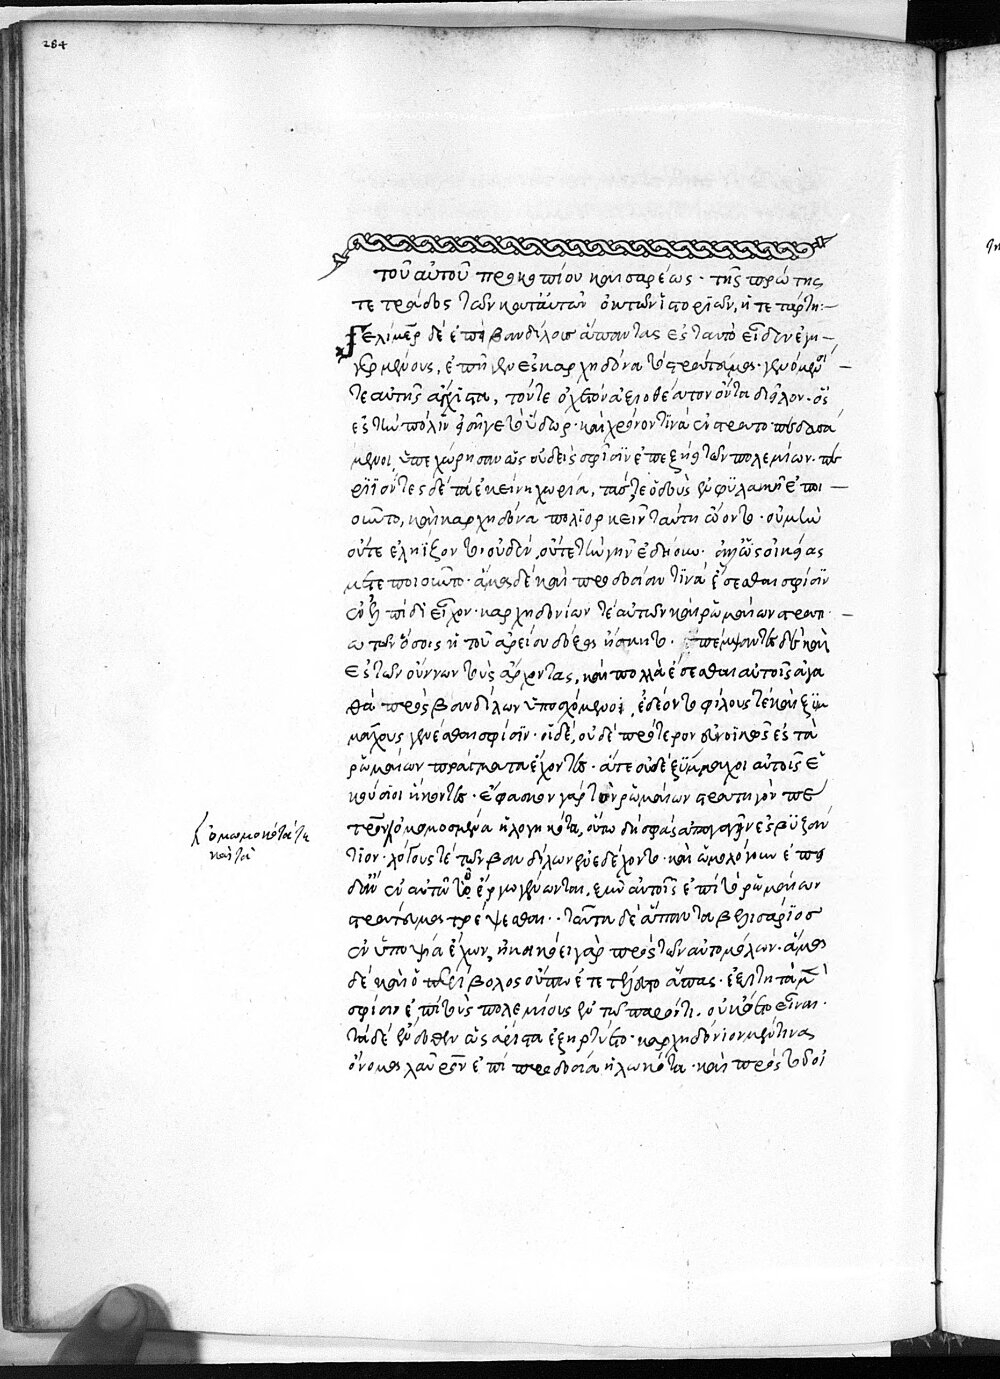 284
τοῦ αὐτοῦ προκοπίου καισαρέως· τῆς πρώτης
τετράδος τῶν κατ' αὐτὸν ὀκτὼ ἱστοριῶν, ἡ τετάρτη:—
Γελίμερ δὲ ἐπεὶ βανδίλους ἅπαντας ἐς ταυτὸ εἶδεν ἀγη—
γερμένους, ἐπῆγεν ἐς καρχηδόνα τὸ στράτευμα· γενόμενοί—
τε αὐτῆς ἄγχιστα, τόν τε ὀχετὸν ἀξιοθέατον ὄντα διεῖλον· ὃς
ἐς τὴν πόλιν ἐσῆγε τὸ ὕδωρ· καὶ χρόνον τινὰ ἐνστρατοπεδευσά
μενοι, ὑπεχώρησαν ὡς οὐδεὶς σφίσιν ἐπεξῄει τῶν πολεμίων· πε
ριϊόντες δὲ τὰ ἐκείνῃ χωρία, τάς τε ὁδοὺς ἐν φυλακῇ ἐποι—
οῦντο, καὶ καρχηδόνα πολιορκεῖν ταύτῃ ᾤοντο· οὐ μὴν
οὔτε ἐληΐζοντο οὐδέν, οὔτε τὴν γῆν ἐδῄουν· ἀλλ' ὡς οἰκείας
μετεποιοῦντο· ἅμα δὲ καὶ προδοσίαν τινὰ ἔσεσθαι σφίσιν
ἐν ἐλπίδι εἶχον· καρχηδονίων τε αὐτῶν καὶ ῥωμαίων στρατι—
ωτῶν ὅσοις ἡ τοῦ ἀρείου δόξα ἤσκητο· πέμψαντες δὲ καὶ
ἐς τῶν οὔννων τοὺς ἄρχοντας, καὶ πολλὰ ἔσεσθαι αὐτοῖς ἀγα
θὰ πρὸς βανδίλων ὑποσχόμενοι, ἐδέοντο φίλους τε καὶ ξυμ
μάχους γενέσθαι σφίσιν· οἱ δέ, οὐδὲ πρότερον εὐνοϊκῶς ἐς τὰ
ῥωμαίων πράγματα ἔχοντες· ἅτε οὐδὲ ξύμμαχοι αὐτοῖς ἑ
κούσιοι ἥκοντες· ἔφασκον γὰρ τὸν ῥωμαίων στρατηγὸν πέ
τρον ὀμωμοσμένα ἠλογηκότα, οὕτω δὴ σφᾶς ἀπαγαγεῖν ἐς βυζάν
τιον· λόγους τε τῶν βανδίλων ἐνεδέχοντο· καὶ ὡμολόγουν ἐπει
δὰν ἐν αὐτῷ τῷ ἔργῳ γένωνται, ξὺν αὐτοῖς ἐπὶ τὸ ῥωμαίων
στράτευμα τρέψεσθαι· ταῦτα δὲ ἅπαντα βελισάριος
ἐν ὑποψίᾳ ἔχων, ἠκηκόει γὰρ πρὸς τῶν αὐτομόλων· ἅμα
δὲ καὶ ὁ περίβολος οὔπω ἐτετέλεστο ἅπας· ἐξιτητὰ μὲν
σφίσιν ἐπὶ τοὺς πολεμίους ἐν τῷ παρόντι οὐκ ᾤετο εἶναι·
τὰ δὲ ἔνδοθεν ὡς ἄριστα ἐξηρτύετο· καρχηδόνιον μέν τινα
ὄνομα λαῦρον ἐπὶ προδοσίᾳ ἡλωκότα· καὶ πρὸς τοῦ οἰ
ὀμωμοκότα τε
κατὰ